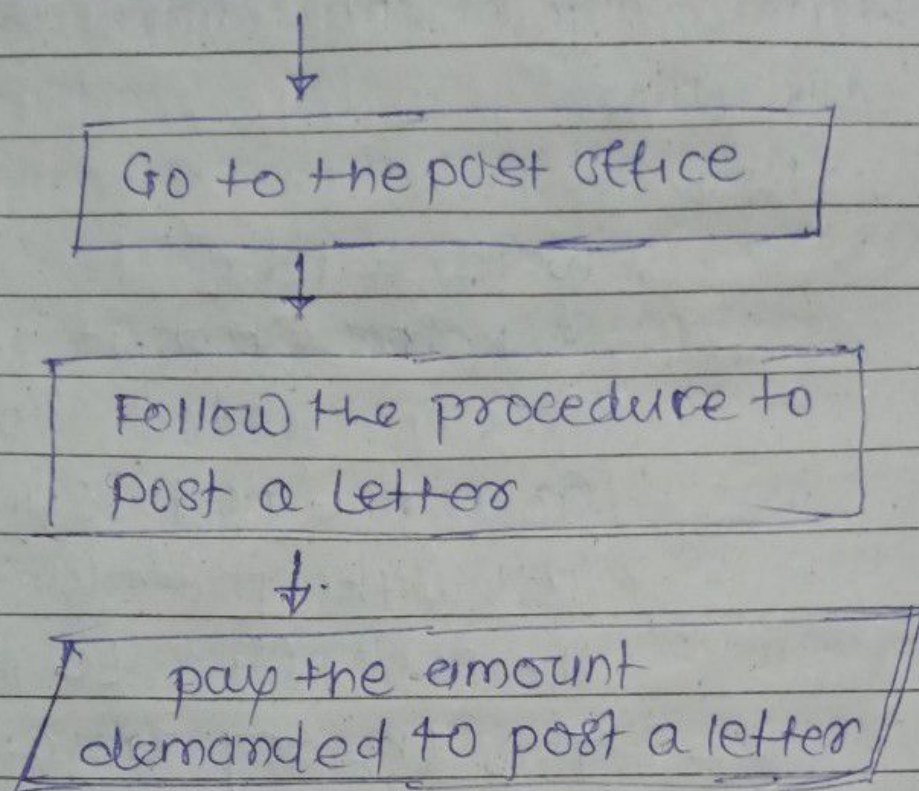 Go to the post office
Follow the procedure to
post a letter
pay the amount
demanded to post a letter